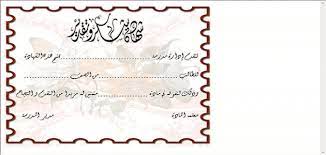 شهادة شكر وتقدير
تتقدم إدارة مدرسة ........ بمنح هذه الشهادة
للطالب ........ من الصف ........
وذلك لتفوقه في مادة ........ متمنين له مزيدا من التقدم والنجاح
معلم المادة مدير المدرسة